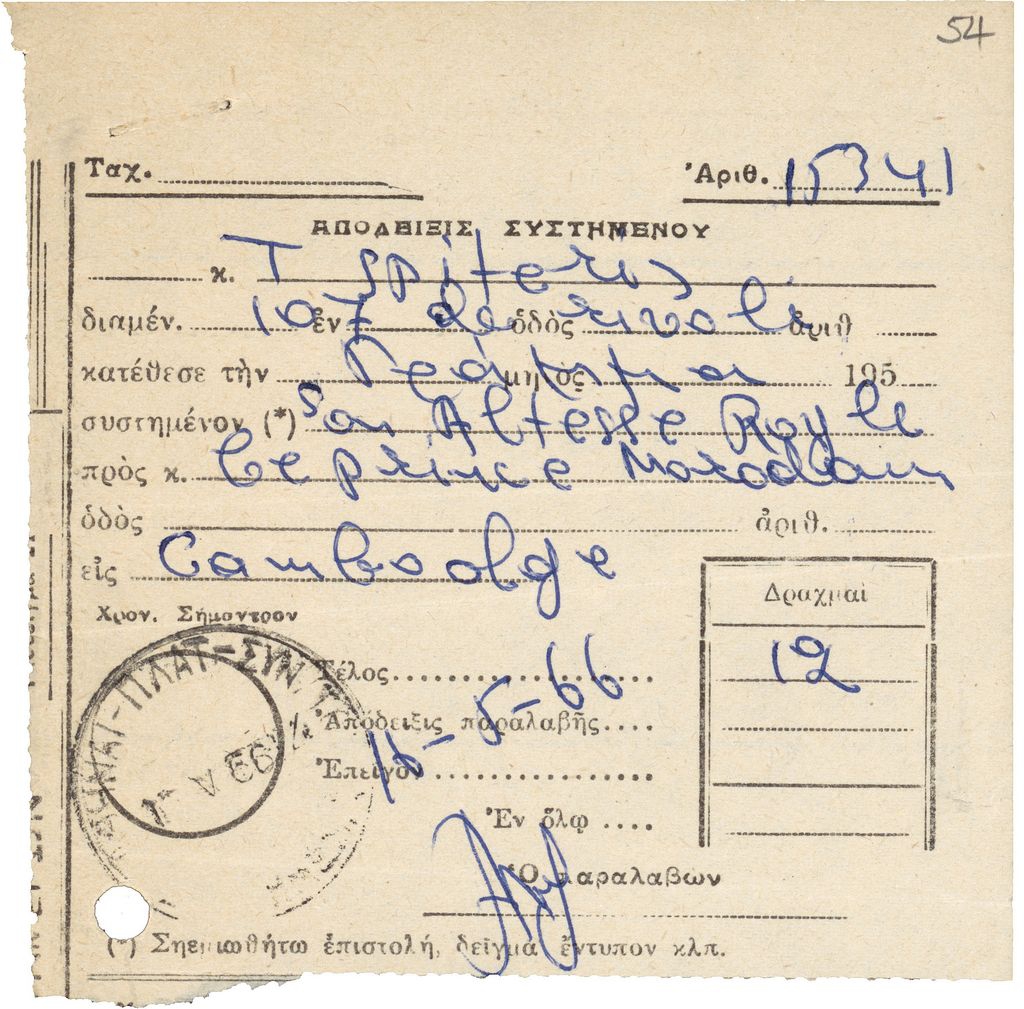 54
Ταχ. Ἀριθ. 15341
ΑΠΟΔΕΙΞΙΣ ΣΥΣΤΗΜΕΝΟΥ
κ. T Spiteris
διαμέν. 107 ἐν de ὁδὸς rivoli ἀριθ
κατέθεσε τὴν Γράμμα μηνὸς 195
συστημένον (*) Son Altesse Royle
πρὸς κ. le prince
ὁδὸς ἀριθ.
εἰς Cambodge
Χρον. Σήμαντρον
Δραχμαὶ
Τέλος 12
Ἀπόδειξις παραλαβῆς
16-5-66
Ἐπεῖγον
ΑΘΗΝΑΙ-ΠΛΑΤ-ΣΥΝ
V 66
Ἐν ὅλῳ
Ὁ παραλαβὼν
(*) Σημειωθήτω ἐπιστολή, δεῖγμα ἔντυπον κλπ.